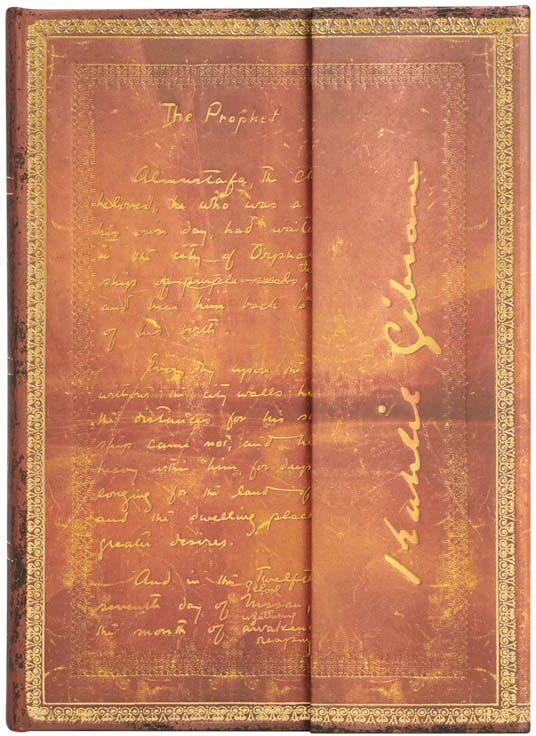 The Prophet
Almustafa, the Ch
beloved, he who was a
his own day, had waite
in the city of Orpha
ship of purple seeds the
and bear him back to
of his birth.
Every day upon the
without the city walls he
the distances for his s
ship came not; and he
heavy within him for deep
longing for the land of
and the dwelling place
greater desires.
And in the Twelfth
seventh day of Nissan,
the month of awakeni
reaping
Kahlil Gibran